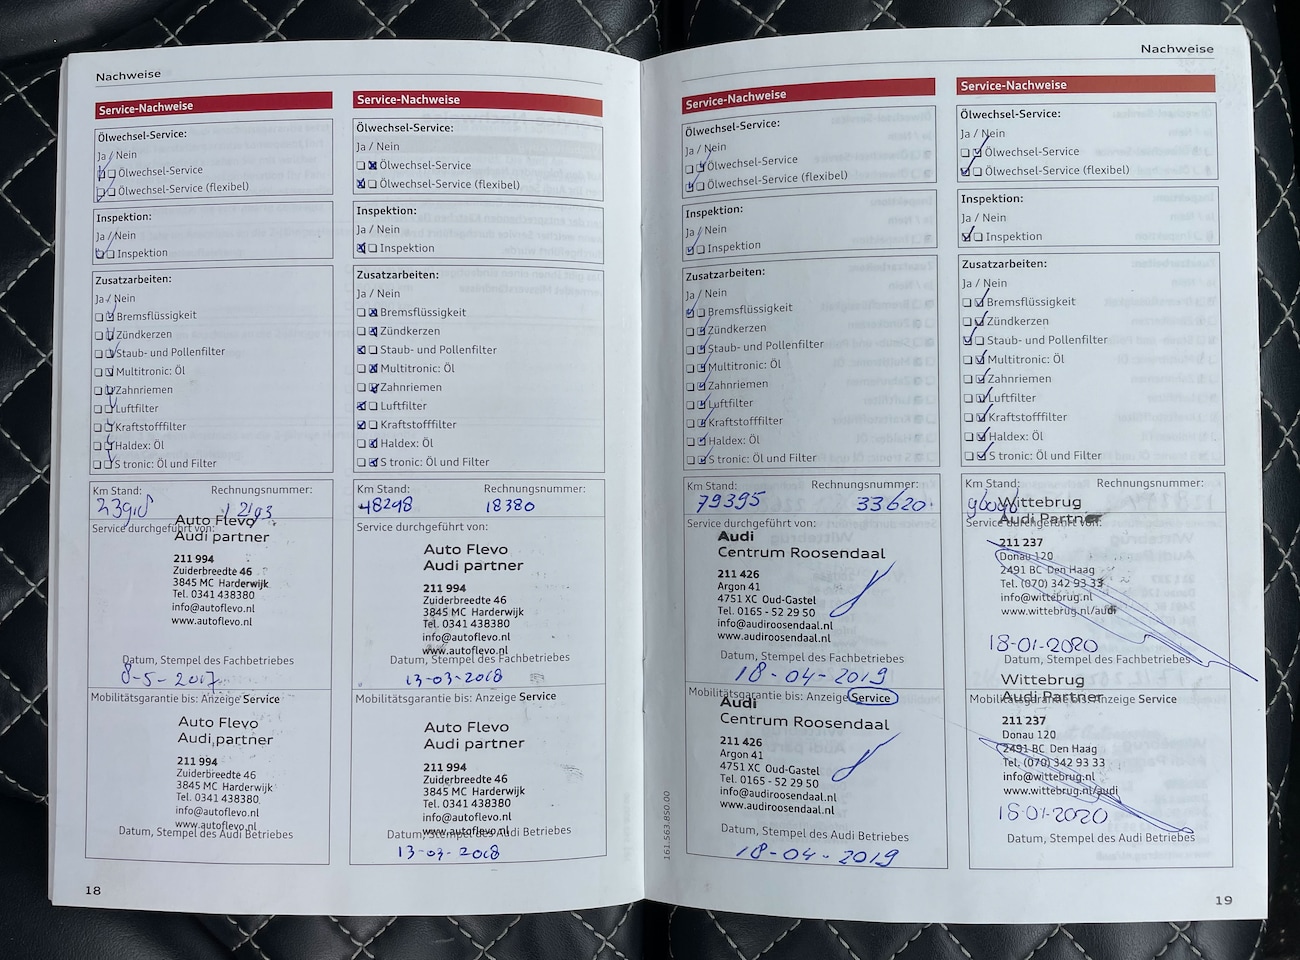 Nachweise
Service-Nachweise
Ölwechsel-Service:
Ja / Nein
Ölwechsel-Service
Ölwechsel-Service (flexibel)
Inspektion:
Ja / Nein
Inspektion
Zusatzarbeiten:
Ja / Nein
Bremsflüssigkeit
Zündkerzen
Staub- und Pollenfilter
Multitronic: Öl
Zahnriemen
Luftfilter
Kraftstofffilter
Haldex: Öl
S tronic: Öl und Filter
Km Stand: Rechnungsnummer:
Service durchgeführt von:
Auto Flevo
Audi partner
211 994
Zuiderbreedte 46
3845 MC Harderwijk
Tel. 0341 438380
info@autoflevo.nl
www.autoflevo.nl
Datum, Stempel des Fachbetriebes
8-5-2017
Mobilitätsgarantie bis: Anzeige Service
Auto Flevo
Audi partner
211 994
Zuiderbreedte 46
3845 MC Harderwijk
Tel. 0341 438380
info@autoflevo.nl
www.autoflevo.nl
Datum, Stempel des Audi Betriebes
18
Service-Nachweise
Ölwechsel-Service:
Ja / Nein
Ölwechsel-Service
Ölwechsel-Service (flexibel)
Inspektion:
Ja / Nein
Inspektion
Zusatzarbeiten:
Ja / Nein
Bremsflüssigkeit
Zündkerzen
Staub- und Pollenfilter
Multitronic: Öl
Zahnriemen
Luftfilter
Kraftstofffilter
Haldex: Öl
S tronic: Öl und Filter
Km Stand: Rechnungsnummer:
48298 18380
Service durchgeführt von:
Auto Flevo
Audi partner
211 994
Zuiderbreedte 46
3845 MC Harderwijk
Tel. 0341 438380
info@autoflevo.nl
www.autoflevo.nl
Datum, Stempel des Fachbetriebes
13-03-2018
Mobilitätsgarantie bis: Anzeige Service
Auto Flevo
Audi partner
211 994
Zuiderbreedte 46
3845 MC Harderwijk
Tel. 0341 438380
info@autoflevo.nl
www.autoflevo.nl
Datum, Stempel des Audi Betriebes
13-03-2018
Nachweise
Service-Nachweise
Ölwechsel-Service:
Ja / Nein
Ölwechsel-Service
Ölwechsel-Service (flexibel)
Inspektion:
Ja / Nein
Inspektion
Zusatzarbeiten:
Ja / Nein
Bremsflüssigkeit
Zündkerzen
Staub- und Pollenfilter
Multitronic: Öl
Zahnriemen
Luftfilter
Kraftstofffilter
Haldex: Öl
S tronic: Öl und Filter
Km Stand: Rechnungsnummer:
79395 33620
Service durchgeführt von:
Audi
Centrum Roosendaal
211 426
Argon 41
4751 XC Oud-Gastel
Tel. 0165 - 52 29 50
info@audiroosendaal.nl
www.audiroosendaal.nl
Datum, Stempel des Fachbetriebes
18-04-2019
Mobilitätsgarantie bis: Anzeige Service
Audi
Centrum Roosendaal
211 426
Argon 41
4751 XC Oud-Gastel
Tel. 0165 - 52 29 50
info@audiroosendaal.nl
www.audiroosendaal.nl
Datum, Stempel des Audi Betriebes
18-04-2019
161.563.850.00
Service-Nachweise
Ölwechsel-Service:
Ja / Nein
Ölwechsel-Service
Ölwechsel-Service (flexibel)
Inspektion:
Ja / Nein
Inspektion
Zusatzarbeiten:
Ja / Nein
Bremsflüssigkeit
Zündkerzen
Staub- und Pollenfilter
Multitronic: Öl
Zahnriemen
Luftfilter
Kraftstofffilter
Haldex: Öl
S tronic: Öl und Filter
Km Stand: Rechnungsnummer:
Wittebrug
Audi Partner
Service durchgeführt von:
211 237
Donau 120
2491 BC Den Haag
Tel. (070) 342 93 33
info@wittebrug.nl
www.wittebrug.nl/audi
18-01-2020
Datum, Stempel des Fachbetriebes
Wittebrug
Audi Partner
Mobilitätsgarantie bis: Anzeige Service
211 237
Donau 120
2491 BC Den Haag
Tel. (070) 342 93 33
info@wittebrug.nl
www.wittebrug.nl/audi
18-01-2020
Datum, Stempel des Audi Betriebes
19